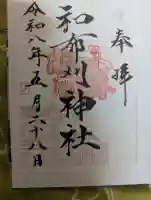 奉拝
和布刈神社
令和八年五月二十八日